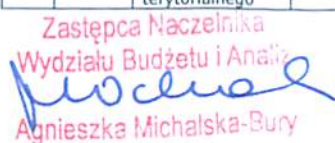 terytorialnego
Zastępca Naczelnika
Wydziału Budżetu i Analiz
Agnieszka Michalska-Bury